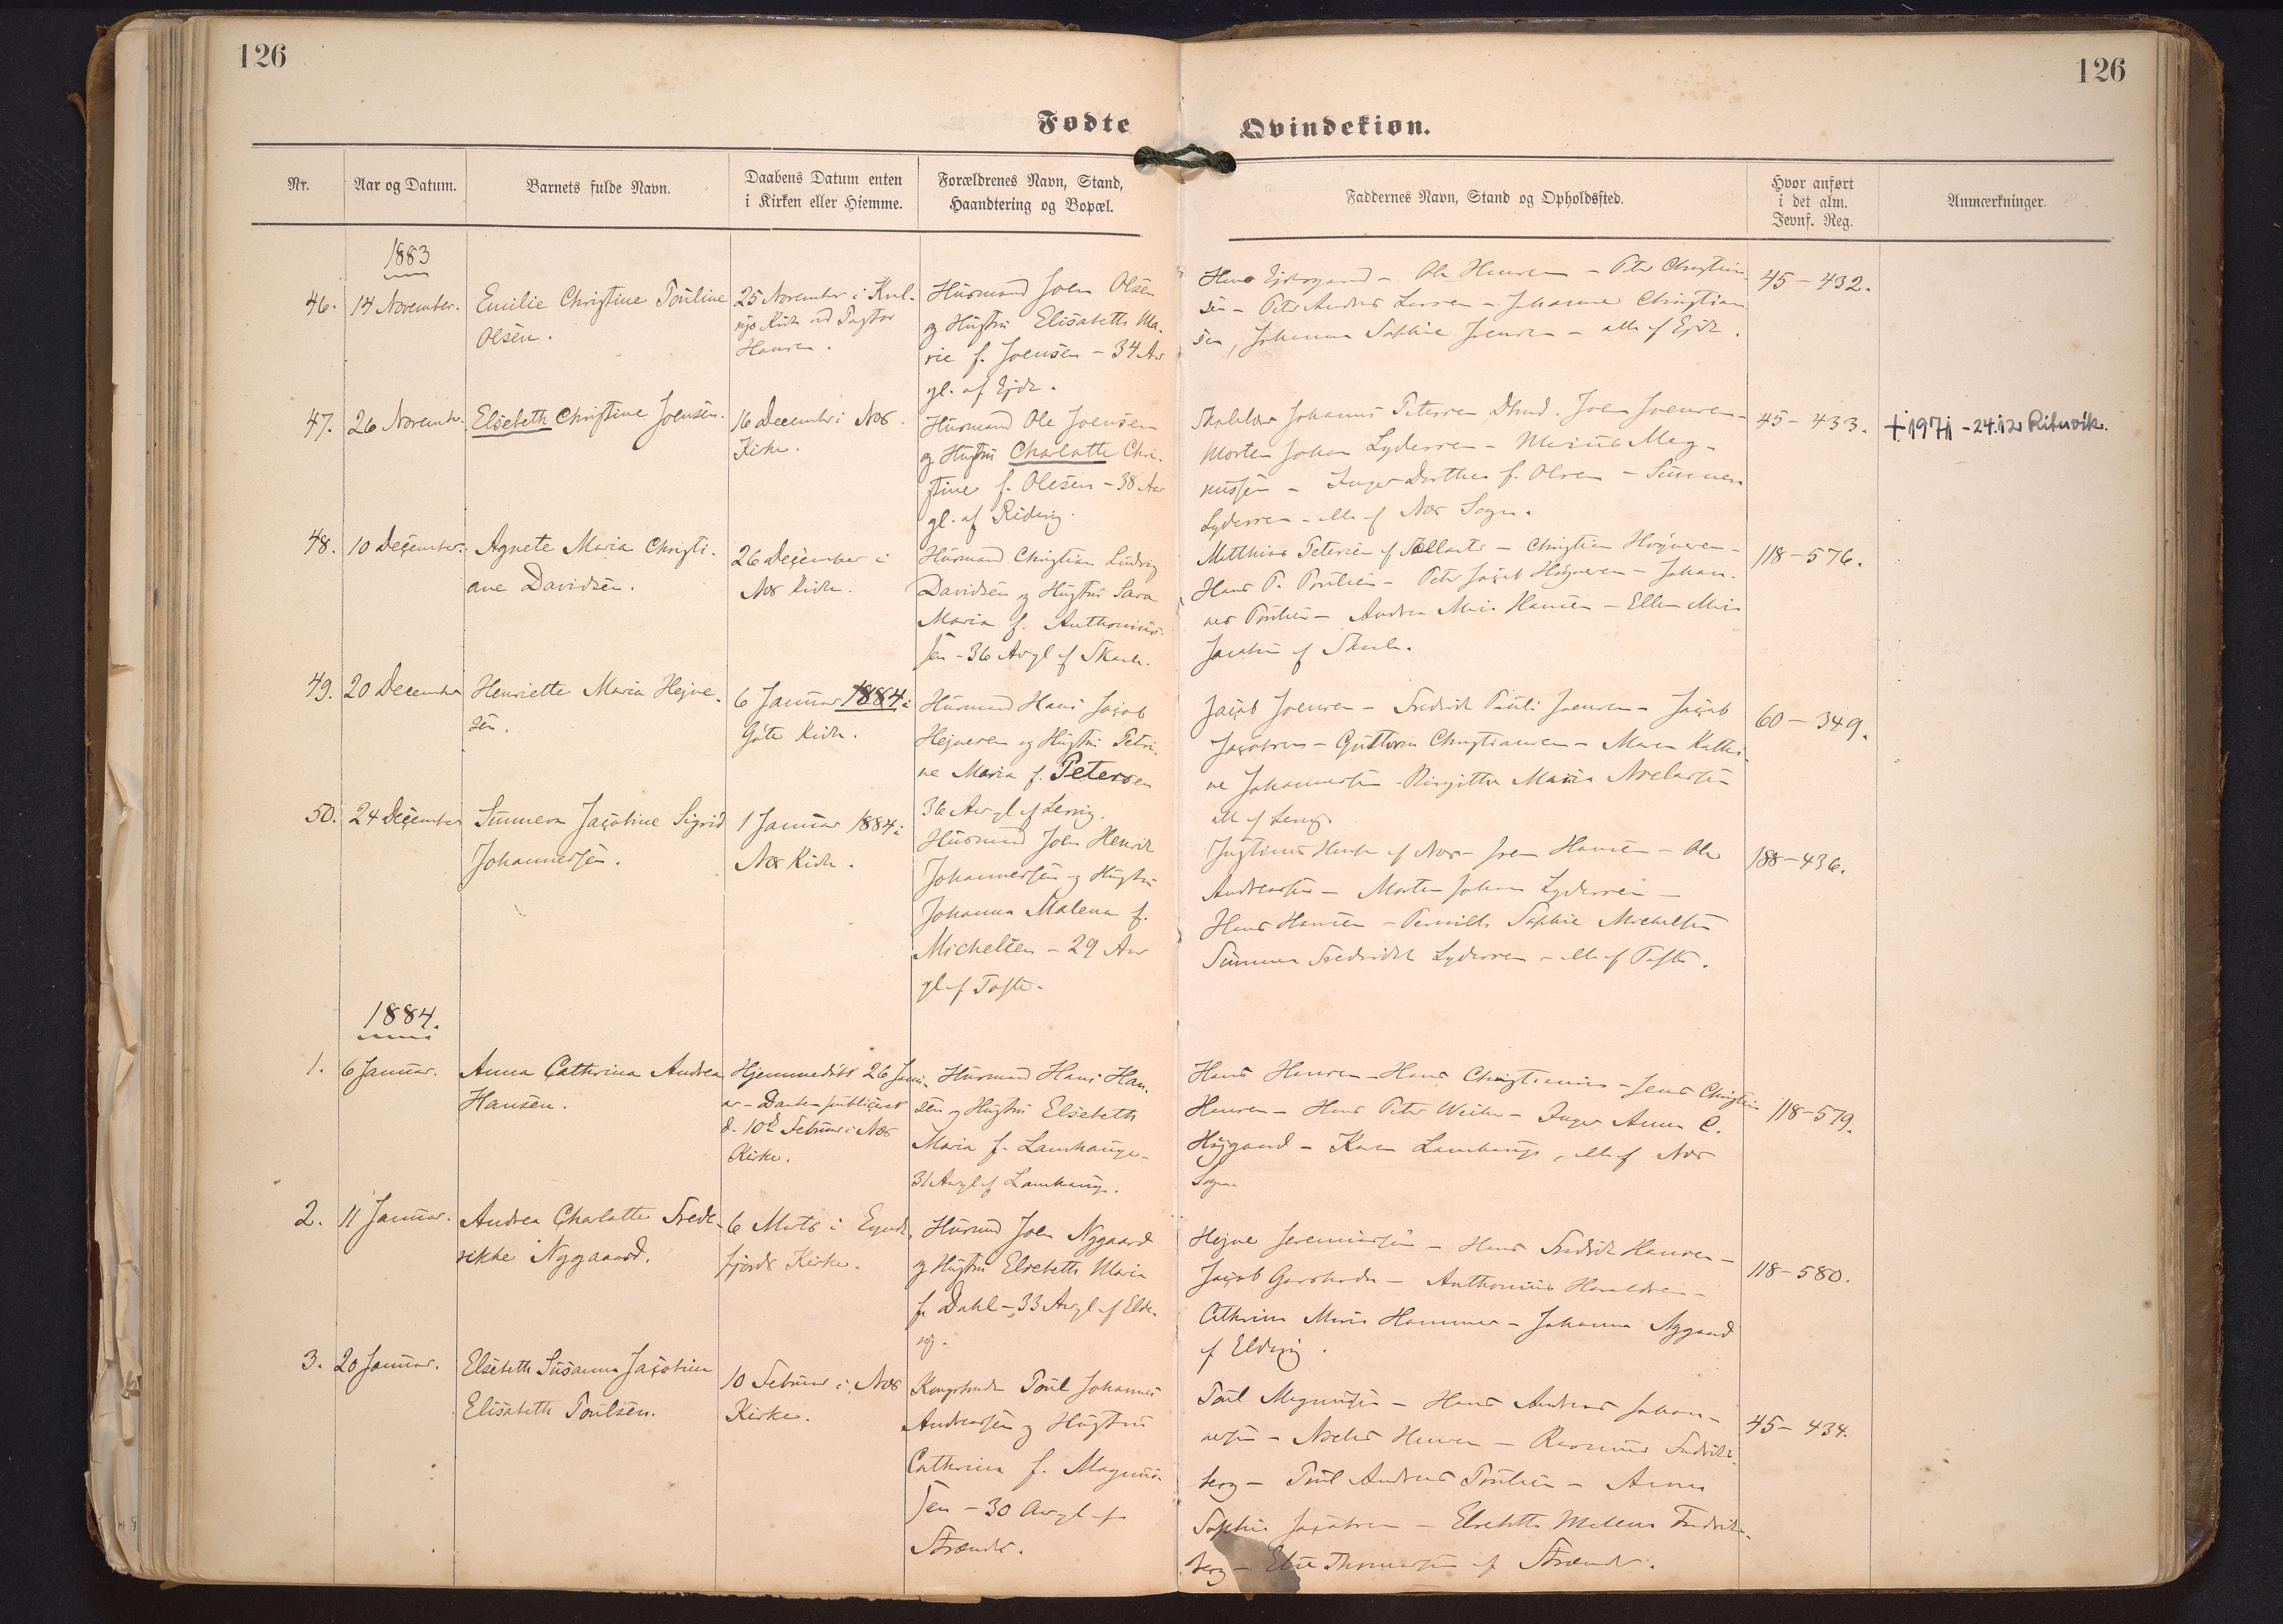 126
126
Fødte
Qvindekiøn.
Nr.
Aar og Datum.
Barnets fulde Navn.
Daabens Datum enten
i Kirken eller Hiemme.
Forældrenes Navn, Stand,
Haandtering og Bopæl.
Faddernes Navn, Stand og Opholdssted.
Hvor anført
i det alm.
Jevnf. Reg.
Anmærkninger.
1883
46.
14 November.
Emilie Christine Pouline
Olsen.
25 November i
Kirke ved Pastor
Hansen.
Husmand Joen Olsen
og Hustru Elisabeth Ma-
rie f. Joensen - 34 Aar
gl. af Ejde.
Hans - Ole Hansen - Peter Christian-
sen - Peter Andreas Larsen - Johanne Christian
sen, Johanna Sophie Joensen - alle af Ejde.
45 - 432.
47.
26 Novembr.
Elsebeth Christine Joensen.
16 Decembr i Nes
Kirke.
Husmand Ole Joensen
og Hustru Charlotte Chri-
stine f. Olesen - 38 Aar
gl. af Ridevig.
Johannes Petersen Joen Joensen -
Morten Johan Lydersen - Mag-
nussen - Inger Dorthea f. Olsen - Sunneva
Lydersen - alle af Nes Sogn.
45 - 433.
+ 1971 - 24.12 Rituvík.
48.
10 December.
Agnete Maria Christi-
ane Davidsen.
26 December i
Nes Kirke.
Husmand Christian Ludvig
Davidsen og Hustru Sara
Maria f. Anthonius-
sen - 36 Aar gl af Skaale.
Matthias Petersen af - Christian Højnesen -
Hans P. Poulsen - Peter Jacob Højnesen - Johan-
nes Poulsen - Andrea Marie Hansen - Ellen Marie
Jacobsen af Skaale.
118 - 576.
49.
20 December
Henriette Maria Hejne-
sen.
6 Januar 1884 i
Gøte Kirke.
Husmand Hans Jacob
Hejnesen og Hustru Petri-
ne Maria f. Petersen
36 Aar gl af Lervig.
Jacob Joensen - Fredrik Pauli Joensen - Jacob
Jacobsen - Guttorm Christiansen - Maren Kathri-
ne Johannessen - Birgitte Maria
alle af Lervig
60 - 349.
50.
24 December
Sunneva Jacobine Sigrid
Johannessen.
1 Januar 1884 i
Nes Kirke.
Husmand Joen Henrik
Johannessen og Hustru
Johanna Malena f.
Michelsen - 29 Aar
gl af Tofte.
Justinus af Nes - Hansen - Ole
Andreassen - Morten Johan Lydersen -
Hans Hansen - Pernille Sophie Michelsen
Sunneva Fredrikke Lydersen - alle af Tofte.
188 - 436.
1884.
1.
6 Januar.
Anna Cathrina Andrea
Hansen.
Hjemmedøbt 26 Janu-
ar - Daaben publiceret
d. 10d Februar i Nes
Kirke.
Husmand Hans Han-
sen og Hustru Elsebeth
Maria f. Lamhauge -
31 Aar gl af Lamhauge.
Hans Hansen - Hans Christiansen - Jens Christian
Hansen - Hans Peter Weihe - Inger Anna C.
Højgaard - Karen Lamhauge, alle af Nes
Sogn
118 - 579.
2.
11 Januar.
Andrea Charlotte Frede-
rikke Nygaard.
6 Marts i Funds-
fjords Kirke.
Husmand Joen Nygaard
og Hustru Elsebeth Maria
f. Dahl - 33 Aar gl af Elde-
vig.
Hejne Jeremiassen - Hans Fredrik Hansen -
Jacob - Anthonius Haraldsen -
Cathrina Maria Hammer - Johanna Nygaard
af Eldevig.
118 - 580.
3.
20 Januar.
Elsebeth Susanna Jacobina
Elisabeth Poulsen.
10 Februar i Nes
Kirke.
Kongsbonde Poul Johannes
Andreassen og Hustru
Cathrina f. Magnus-
sen - 30 Aar gl af
Strænder.
Poul Magnussen - Hans Andreas Johan-
nessen - Niclas Hansen - Rasmus Fredriks-
berg - Poul Andreas Poulsen - Anna
Sophie Jacobsen - Elsebeth Malena Fredriks-
berg - Else Thomassen af Strænder.
45 - 434.